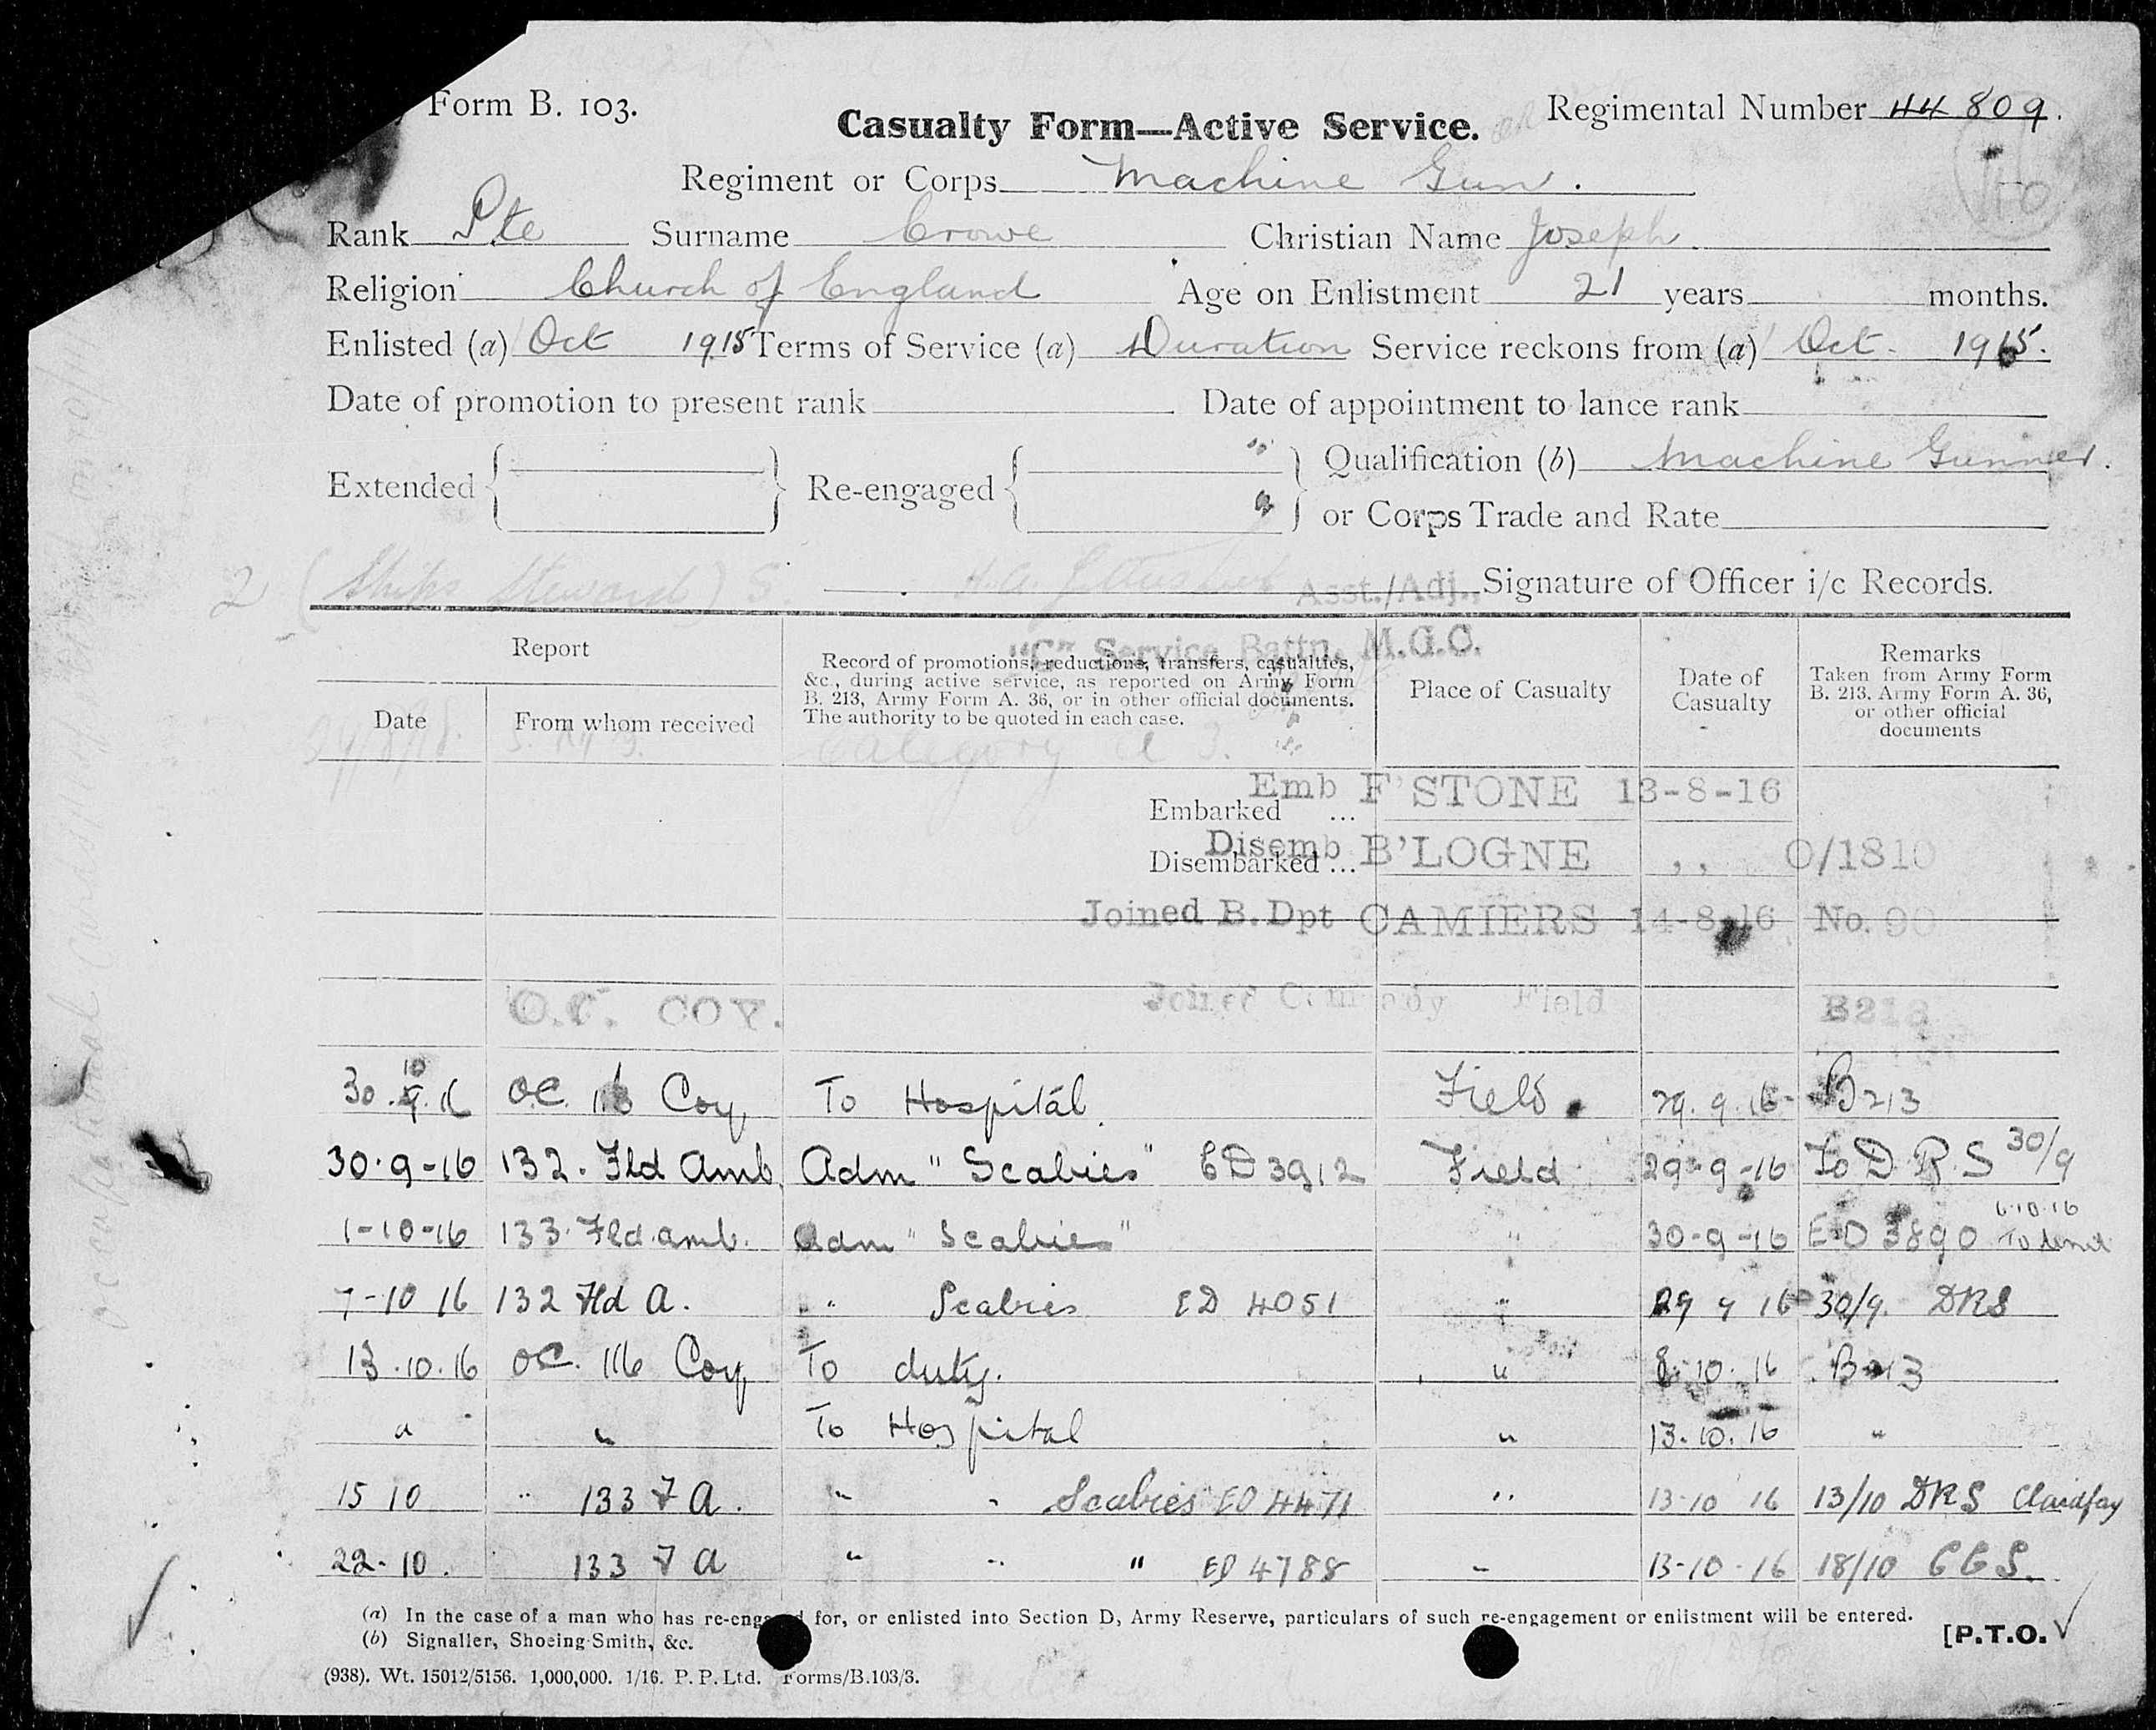 Form B. 103.
Casualty Form—Active Service.
Regimental Number 44 809.
Regiment or Corps Machine Gun.
Rank Pte Surname Crowe Christian Name Joseph.
Religion Church of England Age on Enlistment 21 years months.
Enlisted (a) Oct 1915 Terms of Service (a) Duration Service reckons from (a) Oct. 1915.
Date of promotion to present rank Date of appointment to lance rank
Extended Re-engaged Qualification (b) Machine Gunner.
or Corps Trade and Rate
2 (Ships Steward) S. H.A. Asst./Adj., Signature of Officer i/c Records.
"C" Service Battn. M.G.C.
Report
Date
From whom received
Record of promotions, reductions, transfers, casualties, &c., during active service, as reported on Army Form B. 213, Army Form A. 36, or in other official documents. The authority to be quoted in each case.
Place of Casualty
Date of Casualty
Remarks
Taken from Army Form B. 213, Army Form A. 36, or other official documents
Category A 3.
Emb F'STONE 13-8-16
Embarked ...
Disemb B'LOGNE ,, O/1810
Disembarked ...
Joined B. Dpt CAMIERS 14-8-16 No. 90
O.C. COY. Joined Company Field B213
30.9.16 10 OC. 116 Coy, To Hospital. Field. 29.9.16 B213
30.9-16 132. Fld Amb. Adm "Scabies" ED 3912 Field 29-9-16 To D.R.S 30/9
1-10-16 133. Fld. amb. Adm "Scabies" " 30-9-16 ED 3890 6.10.16 To
7-10 16 132 Fld A. " " Scabies ED 4051 " 29 9 16 30/9. DRS
13.10.16 OC. 116 Coy, To duty. " 8.10.16 B213
" " To Hospital " 13.10.16 "
15 10 " 133 F A. " " Scabies ED 4471 " 13-10 16 13/10 DRS Clairfay
22-10. 133 F A " " " ED 4788 - 13-10-16 18/10 CCS.
(a) In the case of a man who has re-engaged for, or enlisted into Section D, Army Reserve, particulars of such re-engagement or enlistment will be entered.
(b) Signaller, Shoeing-Smith, &c.
[P.T.O.
(938). Wt. 15012/5156. 1,000,000. 1/16. P. P. Ltd. Forms/B.103/3.